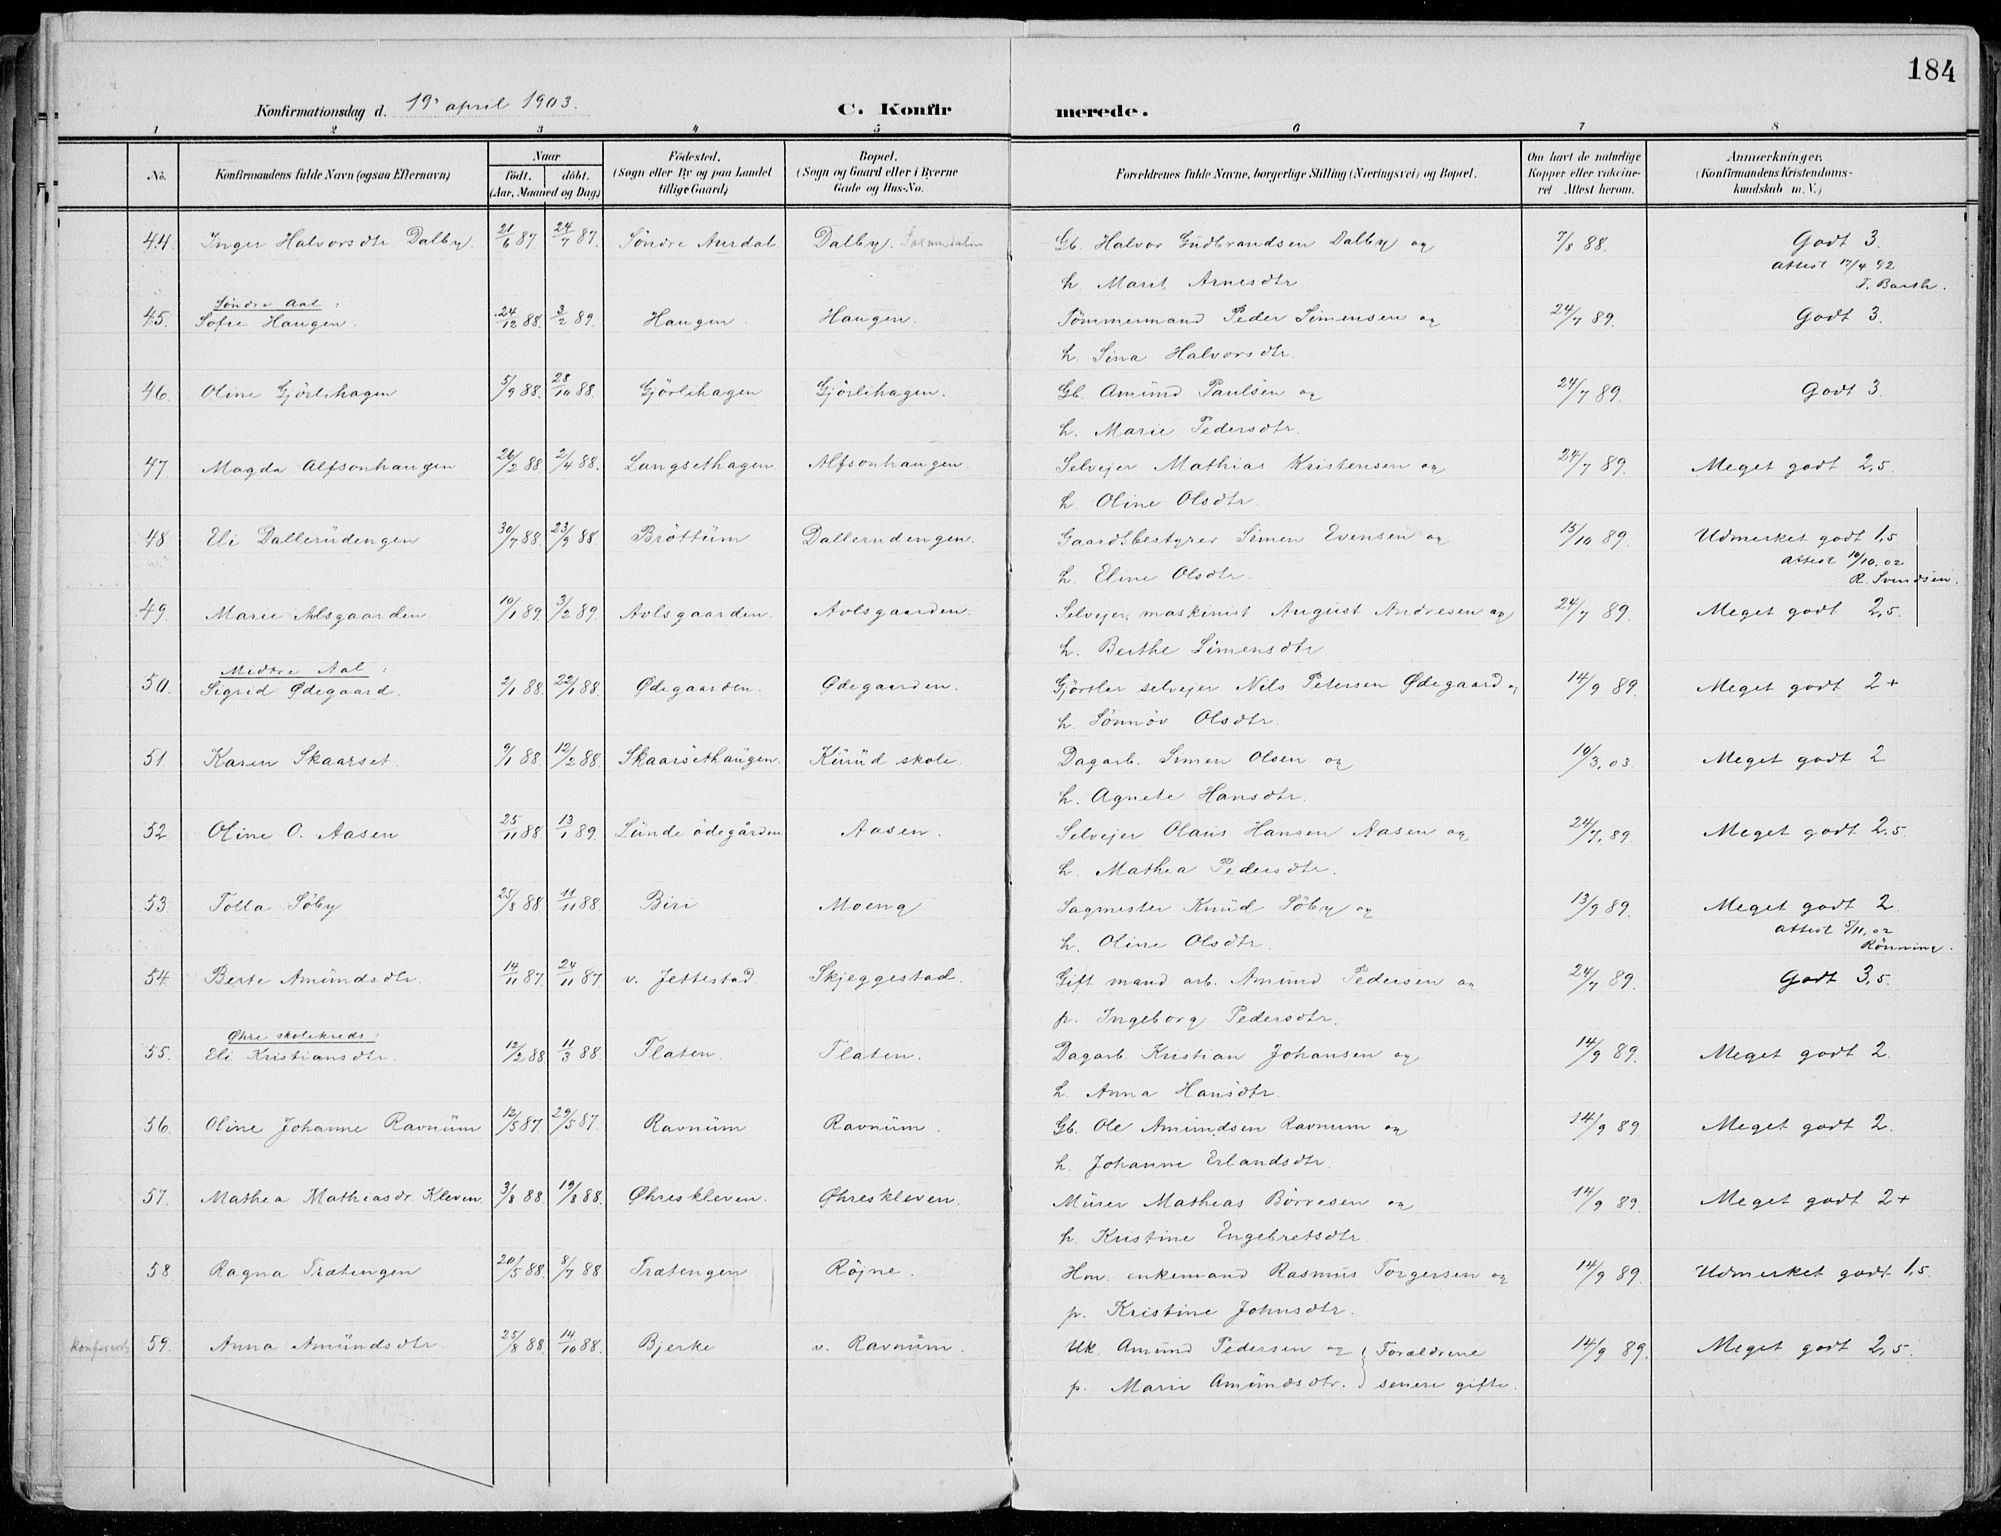 184
Konfirmationsdag d. 19' april 1903.
C. Konfirmerede.
1 2 3 4 5 6 7 8
No. Konfirmandens fulde Navn (ogsaa Efternavn) Naar født. døbt. (Aar, Maaned og Dag) Födested. (Sogn eller By og paa Landet tillige Gaard) Bopæl. (Sogn og Gaard eller i Byerne Gade og Hus-No. Forældrenes fulde Navne, borgerlige Stilling (Næringsvei) og Bopæl. Om havt de naturlige Kopper eller vakcineret Attest herom. Anmærkninger. (Konfirmandens Kristendomskundskab m. V.)
44. Inger Halvorsdtr. Dalby. 21/6 87. 24/7 87. Søndre Aurdal Dalby. Gb. Halvor Gudbrandsen Dalby og 7/8 88. Godt 3.
h Marit Arnesdtr Attest 17/4 92
T. Barth.
Søndre Aal:
45. Sofie Haugen. 24/12 88. 3/2 89. Haugen Haugen. Tömmermand Peder Simensen og 24/7 89. Godt 3.
h. Sina Halvorsdtr.
46. Oline Gjörlihagen 5/9 88. 28/10 88. Gjörlihagen Gjörlihagen. Gb. Amund Paulsen og 24/7 89. Godt 3
h. Marie Pedersdtr.
47 Magda Alfsonhaugen 26/2 88 2/4 88. Langsethagen Alfsonhaugen. Selvejer Mathias Kristensen og 24/7 89. Meget godt 2,5.
h. Oline Olsdtr.
48. Eli Dallerudengen 30/7 88. 23/9 88. Bröttum Dallerudengen. Gaardsbestyrer Simen Evensen og 15/10 89. Udmerket godt 1,5
h. Eline Olsdtr. Attest 10/10.02
R. Svendsen.
49. Marie Avlsgaarden 10/1 89. 3/2 89. Avlsgaarden. Avlsgaarden. Selvejer, maskinist August Andresen og 24/7 89. Meget godt 2,5.
h. Berthe Simensdtr
Midtre Aal:
50. Sigrid Ødegaard. 2/1 88. 22/1 88. Ødegaarden. Ødegaarden. Gjörtler selvejer Nils Petersen Ødegaard og 14/9 89. Meget godt 2+
h. Sönnöv Olsdtr.
51. Karen Skaarset. 9/1 88. 12/2 88. Skaarsethaugen. Kurud skole. Dagarb. Simen Olsen og 10/3.03. Meget godt 2
h. Agnete Hansdtr.
52 Oline O. Aasen 25/11 88. 13/1 89. Lunde ödegården Aasen. Selvejer Olaus Hansen Aasen og 24/7.89. Meget godt 2.5.
h. Mathea Pedersdtr.
53. Tolla Söby 25/8 88. 11/11 88. Biri Moeng Sagmester Knud Söby og 13/9 89. Meget godt 2
h. Oline Olsdtr. Attest 5/11.02
Rönning.
54. Berte Amundsdtr. 14/11 87. 24/11 87 v. Jettestad Skjeggestad. Gift mand arb. Amund Pedersen og 24/7 89. Godt 3,5.
p. Ingeborg Pedersdtr.
Øhre skolekreds:
55. Eli Kristiansdtr. 12/2 88 11/3 88. Flaten. Flaten. Dagarb. Kristian Johansen og 14/9 89. Meget godt 2.
h. Anna Hansdtr.
56. Oline Johanne Ravnum 12/5 87. 29/5 87. Ravnum Ravnum. Gb. Ole Amundsen Ravnum og 14/9 89. Meget godt 2.
h. Johanne Erlandsdtr.
57. Mathea Mathiasdr. Kleven. 3/8 88. 19/8 88. Øhreskleven. Øhreskleven. Murer Mathias Börresen og 14/9 89. Meget godt 2+
h. Kristine Engebretsdtr.
58. Ragna Trætengen 20/5 88. 8/7 88 Trætengen Röjne. Hm. enkemand Rasmus Torgersen og 14/9 89. Udmerket godt 1,5.
p. Kristine Johnsdtr.
59. Anna Amundsdtr. 25/8 88. 14/10 88. Bjerke v. Ravnum. Uk. Amund Pedersen og } Forældrene 14/9 89. Meget godt 2,5.
p. Marie Amundsdtr. } senere gifte.